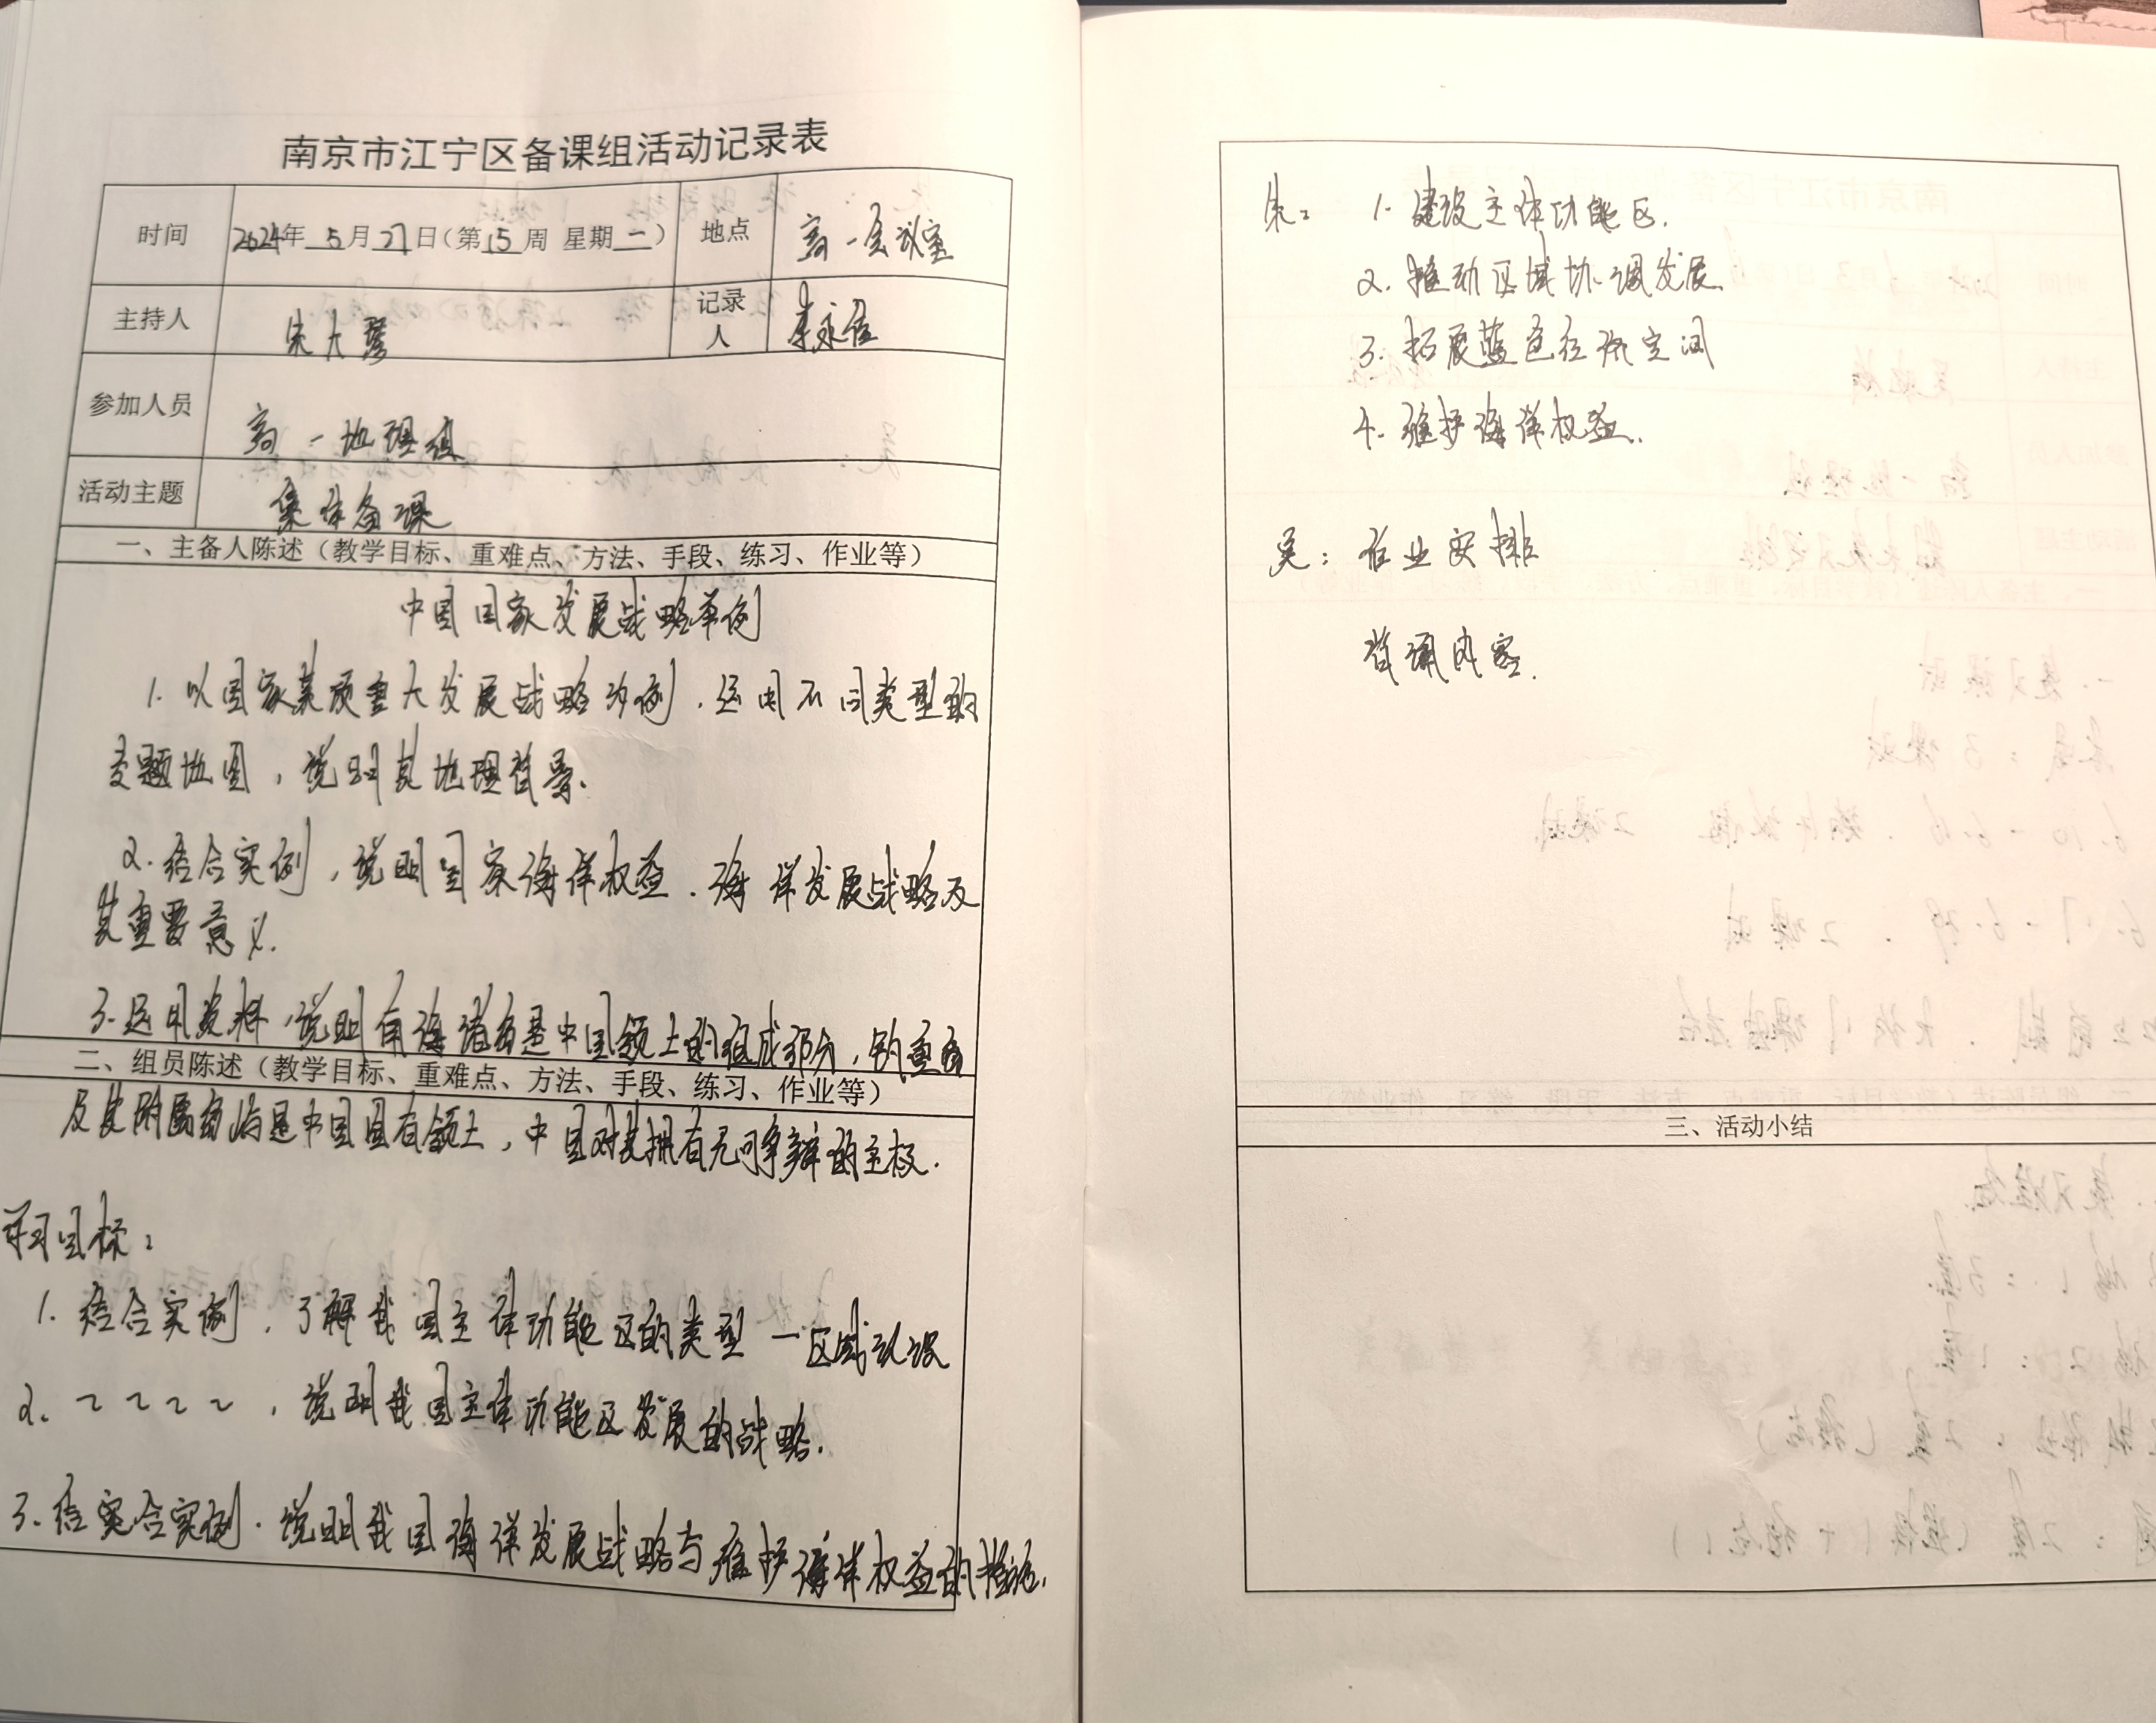 南京市江宁区备课组活动记录表
时间 2024年 5月27日(第15周 星期二) 地点 高一会议室
主持人 朱大 记录人 李永信
参加人员 高一地理组
活动主题 集体备课
一、主备人陈述（教学目标、重难点、方法、手段、练习、作业等）
中国国家发展战略举例
1. 以国家某项重大发展战略为例，运用不同类型的
专题地图，说明其地理背景.
2. 结合实例，说明国家海洋权益、海洋发展战略及
其重要意义.
3. 运用资料，说明南海诸岛是中国领土的组成部分，钓鱼岛
二、组员陈述（教学目标、重难点、方法、手段、练习、作业等）
及其附属岛屿是中国固有领土，中国对其拥有无可争辩的主权.
学习目标：
1. 结合实例，了解我国主体功能区的类型 一区域
2. ～～～～，说明我国主体功能区发展的战略.
3. 结实合实例. 说明我国海洋发展战略与维护海洋权益的措施.
朱： 1. 建设主体功能区.
2. 推动区域协调发展.
3. 拓展蓝色经济空间
4. 维护海洋权益.
吴： 作业安排
背诵内容.
三、活动小结